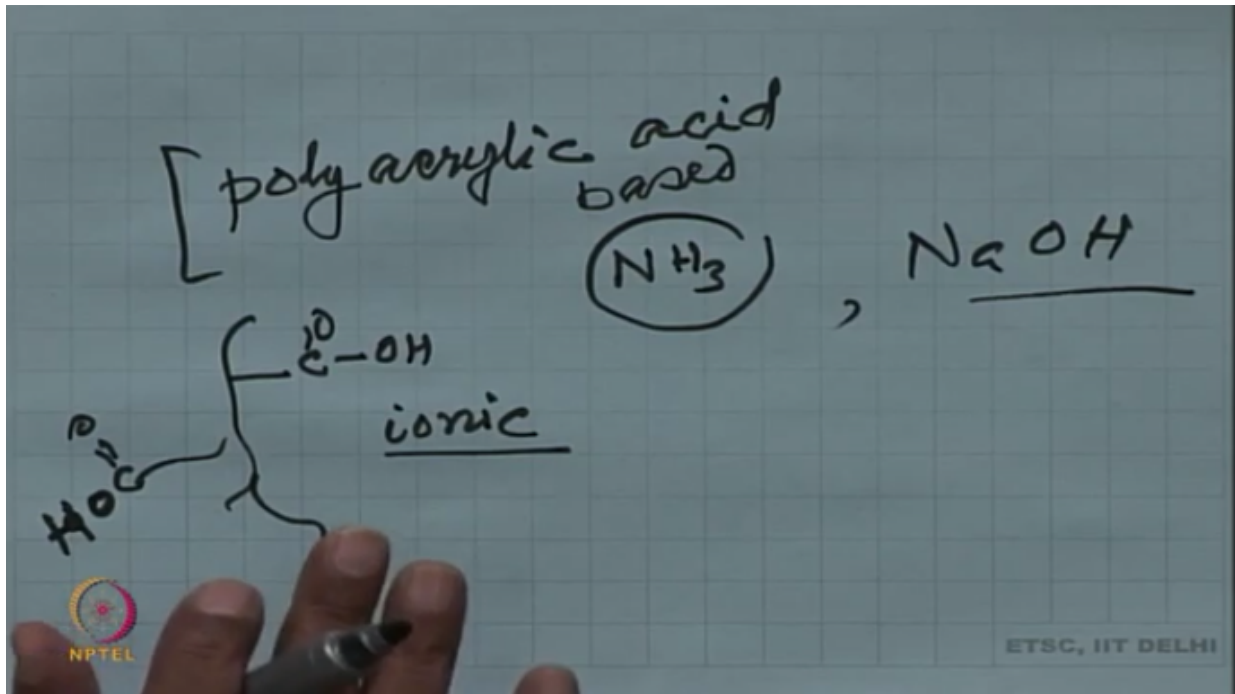 [ poly acrylic acid
based
NH3 , NaOH
C-OH
O
ionic
O
C
HO
NPTEL
ETSC, IIT DELHI